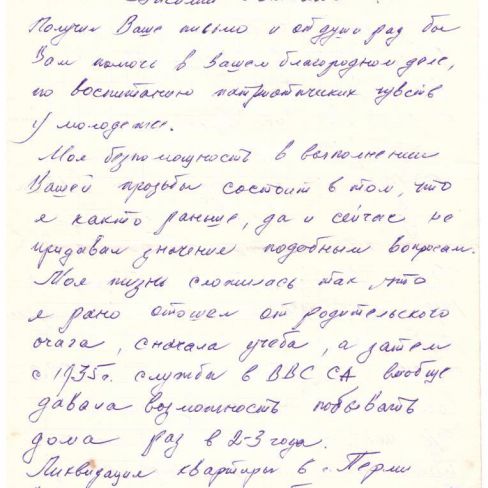 Получил Ваше письмо и от души рад бы
Вам помочь в Вашем благородном деле,
по воспитанию патриотических чувств
у молодежи.
Моя безпомощность в выполнении
Вашей прозьбы состоит в том, что
я както раньше, да и сейчас не
придавал значение подобным вопросам.
Моя жизнь сложилась так, что
я рано отошел от родительского
очага, сначала учеба, а затем
с 1935г. служба в ВВС СА вообще
давала возможность побывать
дома раз в 2-3 года.
Ликвидация квартиры в г. Перми